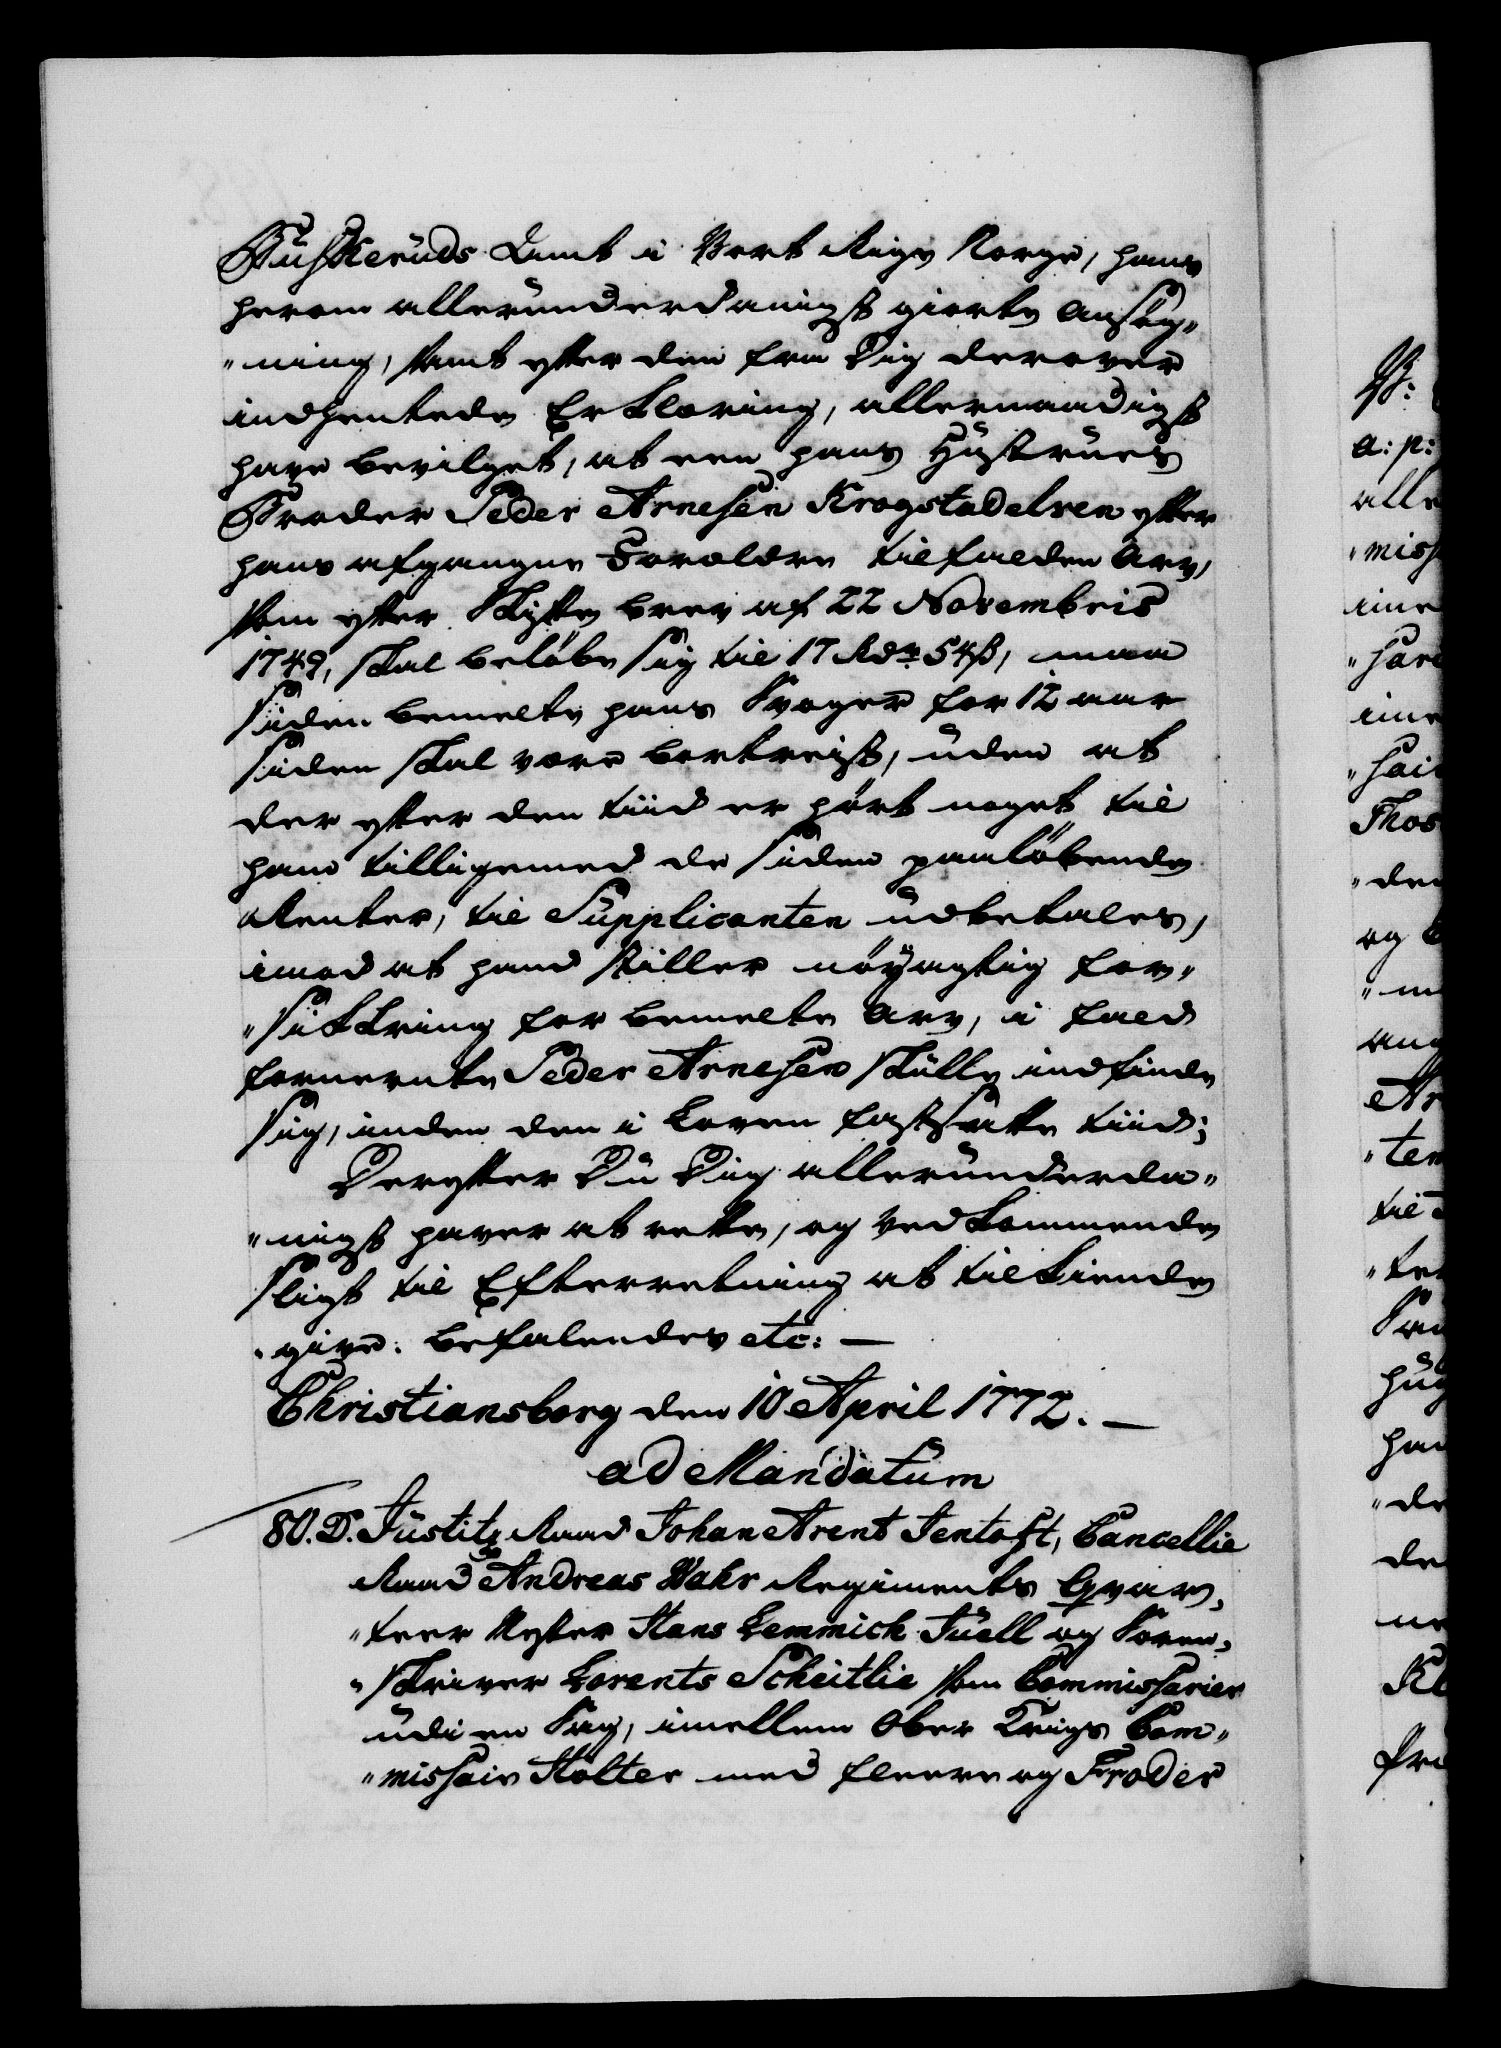 Buskeruds Amt i Vort Rige Norge, hans
herom allerunderdanigst giorte Ansøg¬
"ning, samt efter den fra Dig derover
indhentede Erklæring, allernaadigst
have bevilget, at een hans Hustrues
Broder Peder Arnesen Krogstadelven efter
hans afgangne Forældre tilfalden Arv,
som efter Skifte brev af 22 Novembris
1749, skal beløbe sig til 17 Rdr 54 ß, maa
siden bemelte hans Svoger for 12 aar
siden skal være bortreist, uden at
der efter den tiid er hørt noget til
ham tilligemed de siden paaløbende
Renter, til Supplicanten udbetales,
imod at hand stiller nøyagtig for¬
"sikkring for bemelte Arv, i fald
fornevnte Peder Arnesen skulle indfinde
sig, inden den i Loven fastsatte tiid;
Derefter Du Dig allerunderda¬
"nigst haver at rette, og Vedkommende
sligt til Efterretning at tilkiende
"give. Befalendes etc: —
Christiansborg den 10 April 1772. —
ad Mandatum
80. D. Justitz Raad Johan Arent Tentoft, Cancellie
Raad Andreas Wahr Regiments Qvar¬
"teer Mester Hans Lemmich Juell og Soren¬
"skriver Lorents Scheitlie som Commissarier
udi en Sag, imellem Ober Krigs Com¬
"missair Holter med fleere og Broder